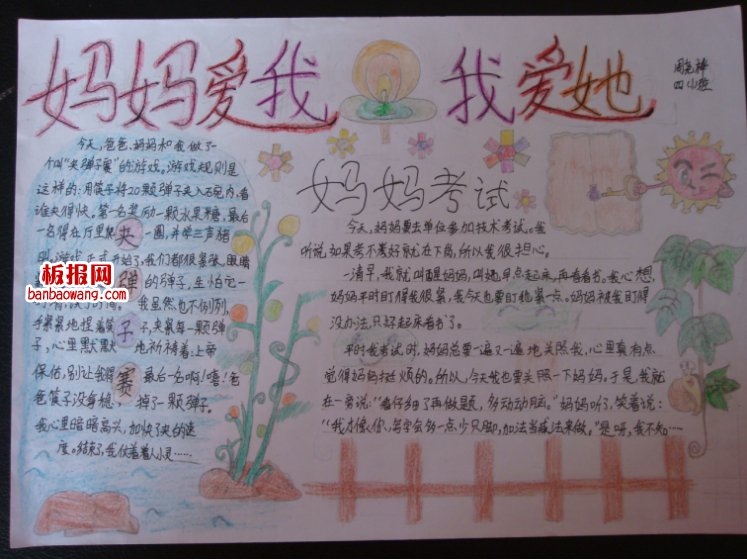 妈妈爱我 我爱她
四(1)班
今天,爸爸、妈妈和我做了一
个叫"夹弹子赛"的游戏。游戏规则是
这样的:用筷子将20颗弹子夹入石碗内,看
谁夹得快。第一名奖励一颗水果糖,最后
一名得在厅里爬一圈,并学三声猪
叫,游戏正式开始了,我们都很紧张,眼睛
的弹子,生怕它一
我虽然也不例外,
手紧紧地捏着筷子,夹紧每一颗弹
子,心里默默地祈祷着:上帝
保佑,别让我得最后一名啊!嘻!爸
爸筷子没夹稳,掉了一颗弹子。
我心里暗暗高兴,加快了夹的速
度。结束了,我仗着着人小灵……
夹
弹
子
赛
板报网
banbaowang.com
妈妈考试
今天,妈妈要去单位参加技术考试。我
听说,如果考不好就在下岗,所以我很担心。
一清早,我就叫醒妈妈,叫她早点起来,再看看书。我心想,
妈妈平时盯得我很紧,我今天也要盯她紧一点。妈妈被我盯得
没办法,只好起来看书了。
平时我考试时,妈妈总要一遍又一遍地关照我,心里真有点
觉得妈妈挺烦的。所以,今天我也要关照一下妈妈。于是,我就
在一旁说:"看仔细了再做题,多动动脑。"妈妈听了,笑着说:
"我才像你,写字会多一点少只脚,加法当减法来做。"是呀,我不知……